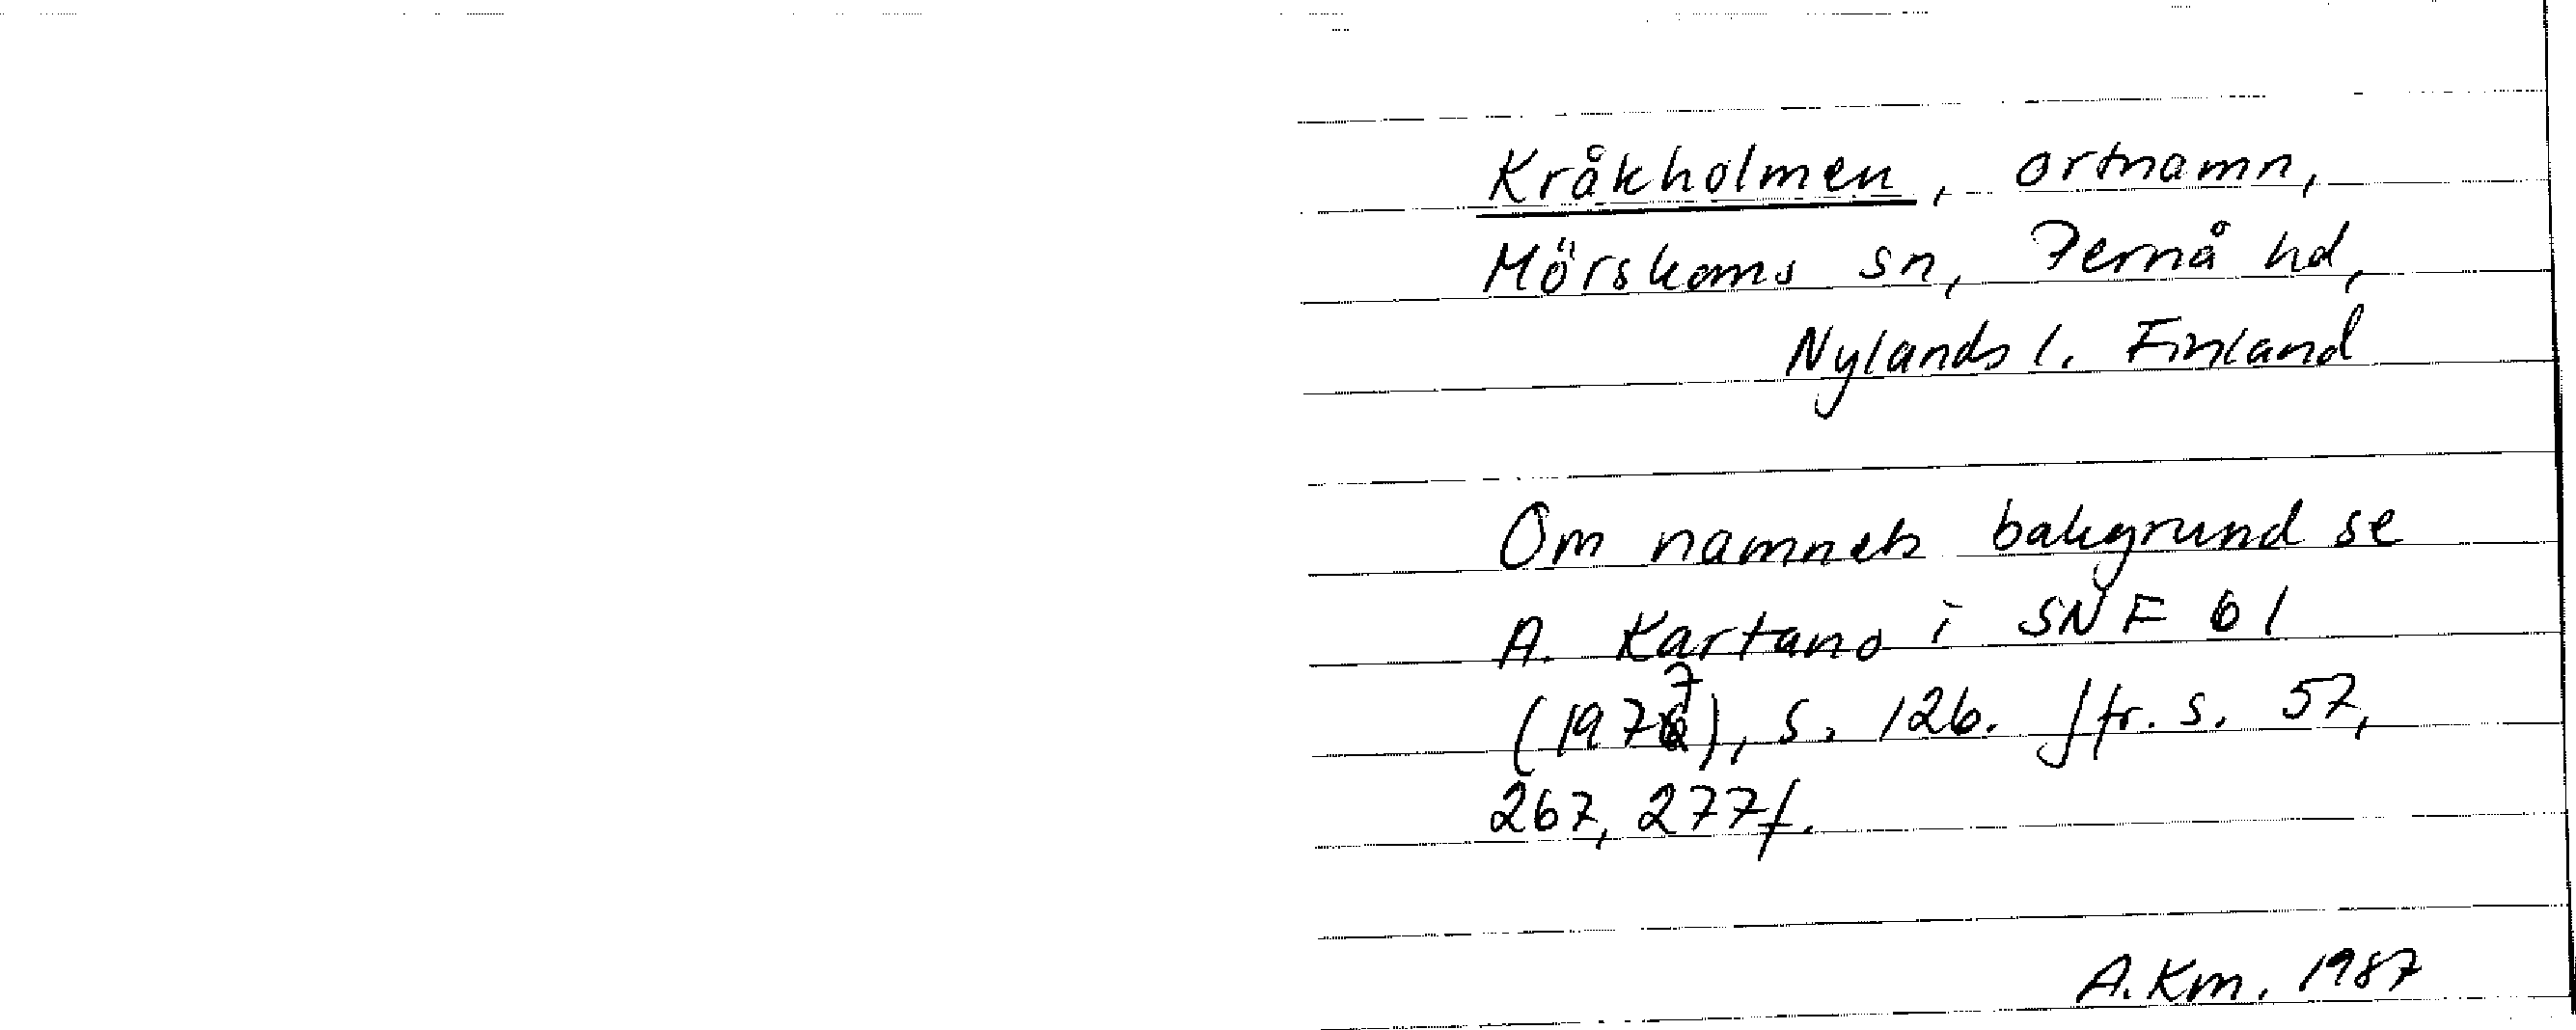 Kråkholmen, ortnamn,
Mörskoms sn, Pernå hd,
Nylands l. Finland
Om namnets bakgrund se
A. Kartano i SNF 61
(1977), s. 126. Jfr. s. 57,
267, 277f.
A. Km. 1987